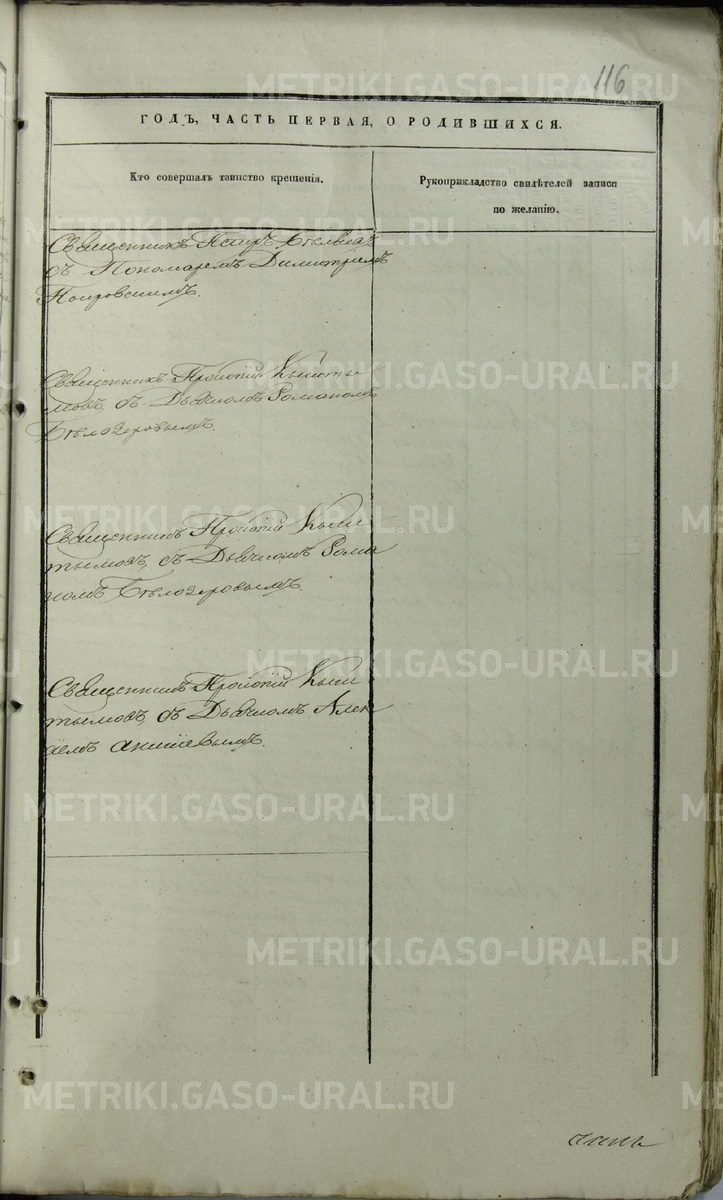 116
METRIKI.GASO-URAL.RU
ГОДЪ, ЧАСТЬ ПЕРВАЯ, О РОДИВШИХСЯ.
Кто совершалъ таинство крещенія.
Рукоприкладство свидѣтелей записи
по желанію.
Священникъ Петръ
съ Пономаремъ Димитріемъ
Покровскимъ.
Священникъ Прокопій Кышты
мовъ, съ Дьячкомъ Романомъ
Бѣлозеровымъ.
Священникъ Прокопій Кыш
тымовъ, съ Дьячкомъ Рома
номъ Бѣлозеровымъ.
Священникъ Прокопій Кыш
тымовъ, съ Дьячкомъ Алек